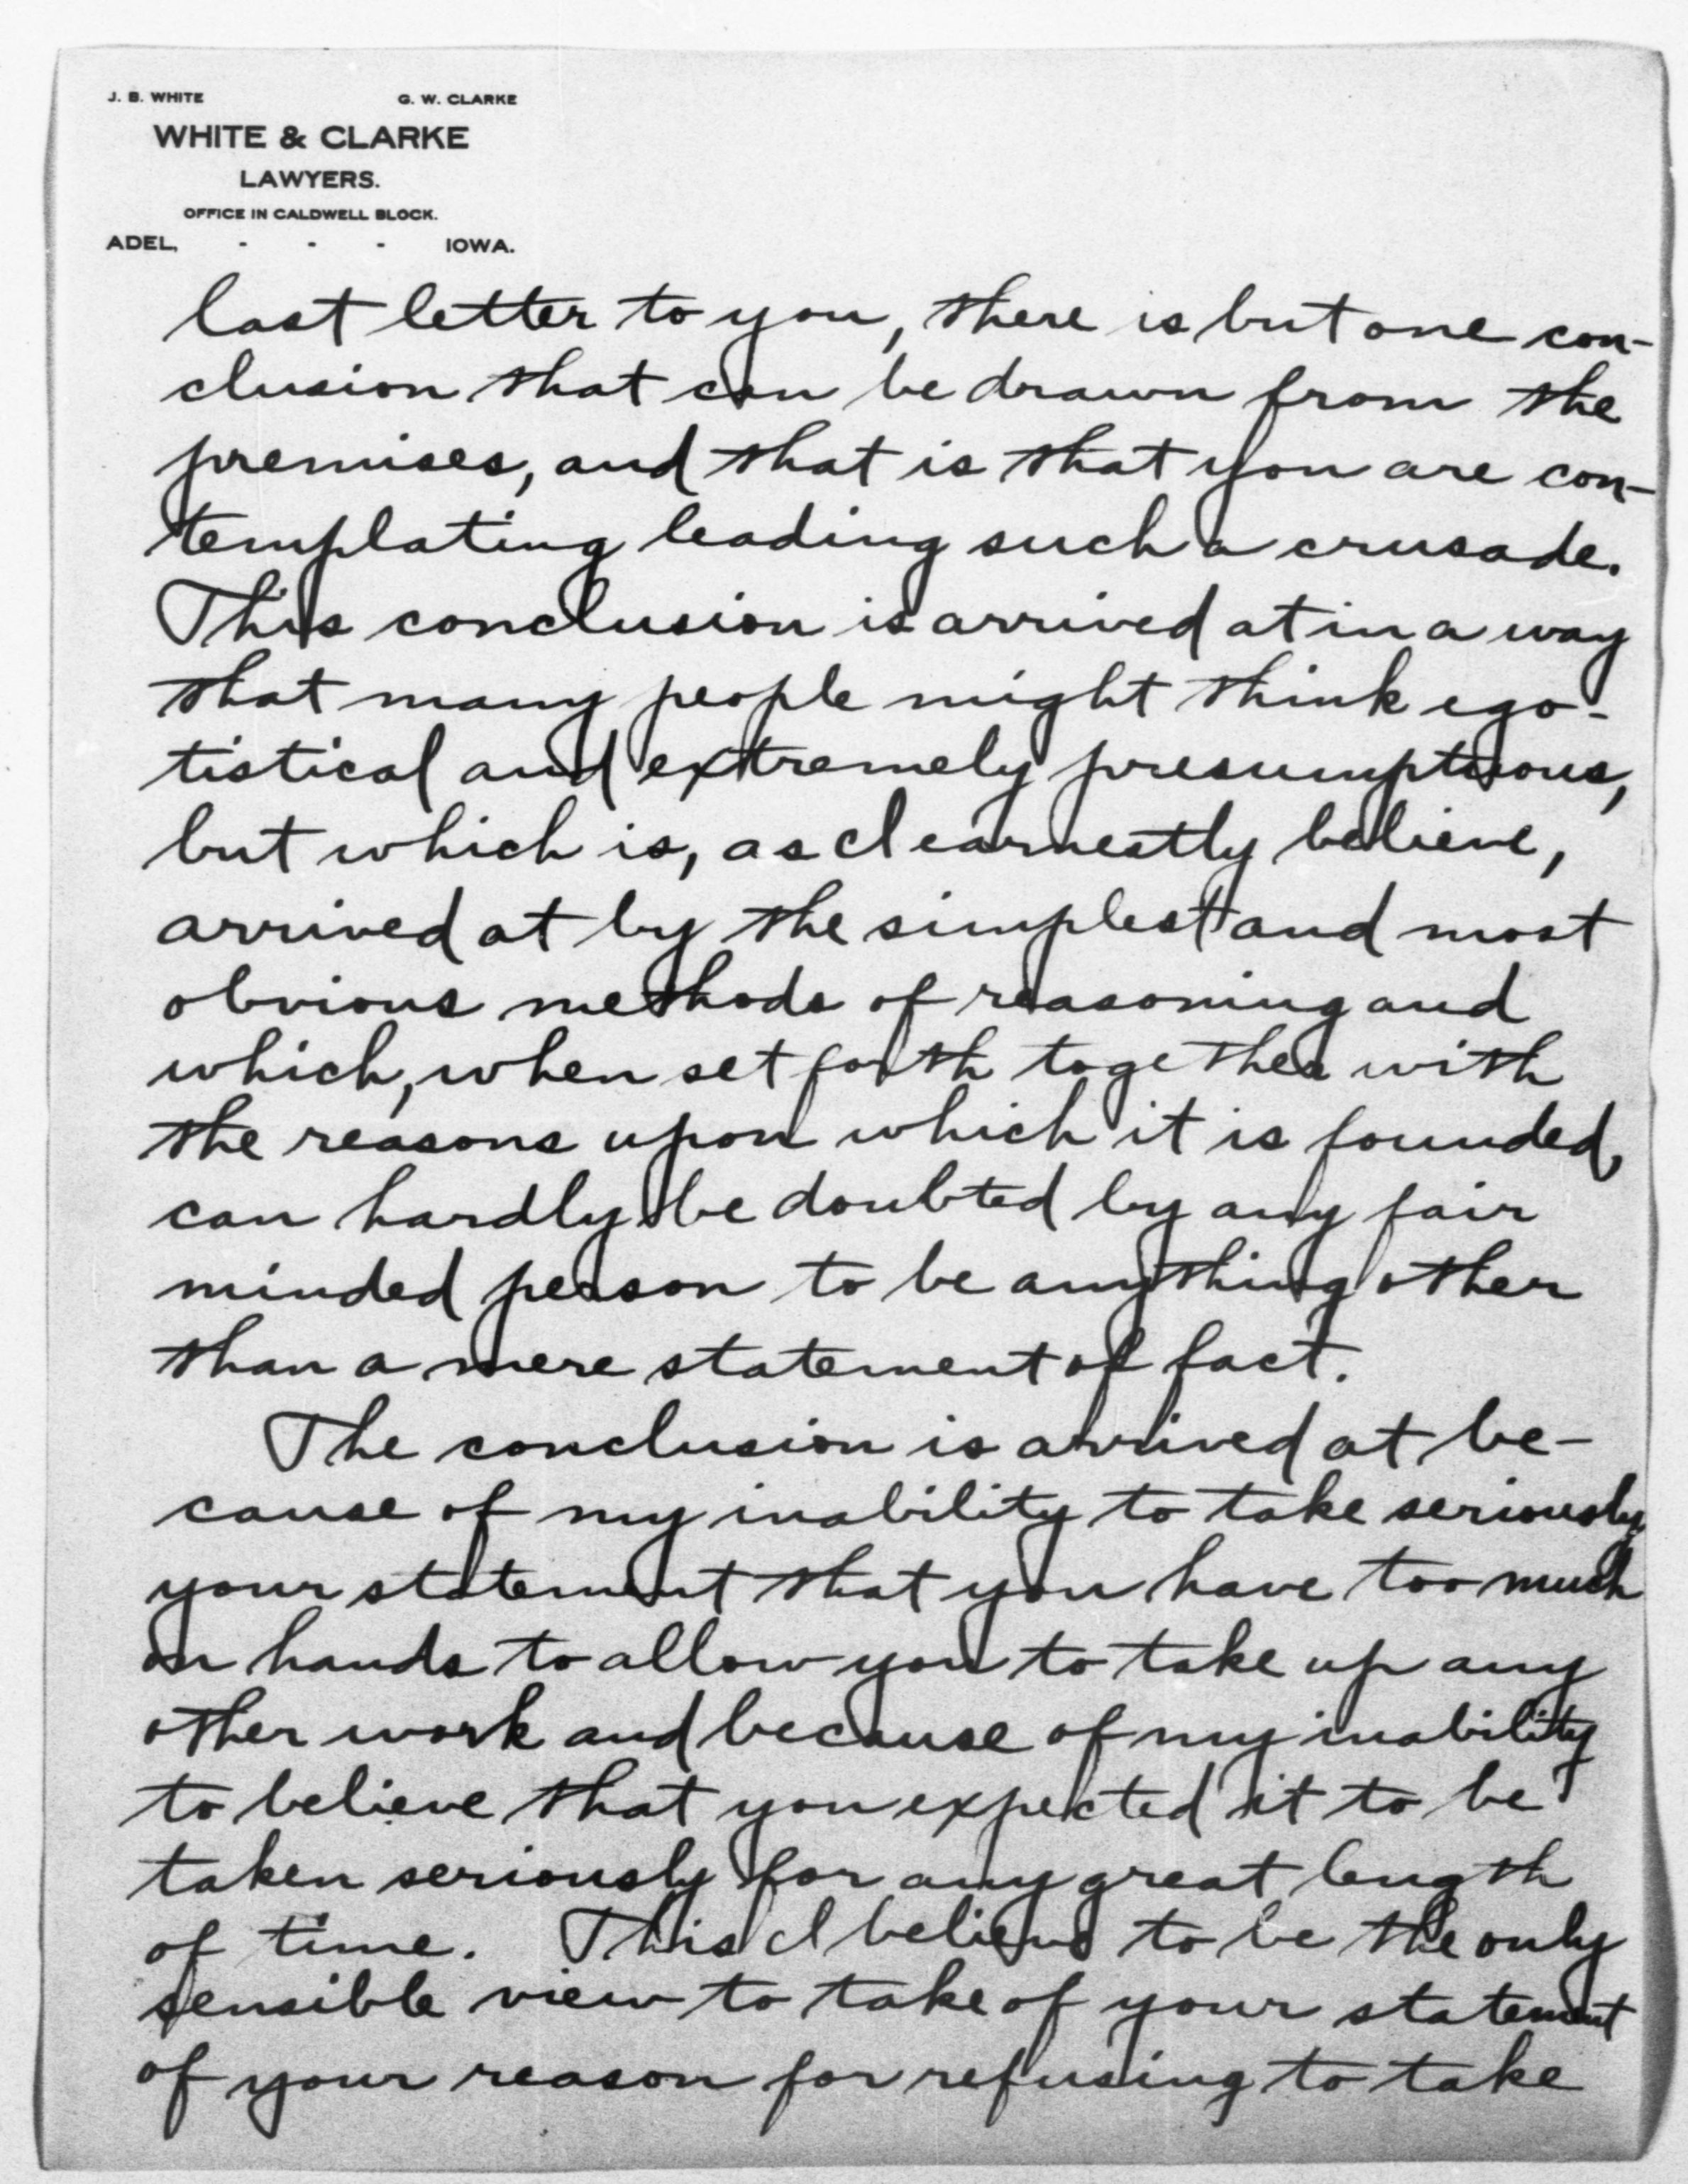 J. B. WHITE G. W. CLARKE
WHITE & CLARKE
LAWYERS.
OFFICE IN CALDWELL BLOCK.
ADEL, - - - IOWA.
last letter to you, there is but one con-
clusion that can be drawn from the
premises, and that is that you are con-
templating leading such a crusade.
This conclusion is arrived at in a way
that many people might think ego-
tistical and extremely presumptuous,
but which is, as I earnestly believe,
arrived at by the simplest and most
obvious methods of reasoning and
which, when set forth together with
the reasons upon which it is founded,
can hardly be doubted by any fair
minded person to be anything other
than a mere statement of fact.
The conclusion is arrived at be-
cause of my inability to take seriously
your statement that you have too much
on hands to allow you to take up any
other work and because of my inability
to believe that you expected it to be
taken seriously for any great length
of time. This I believe to be the only
sensible view to take of your statement
of your reason for refusing to take